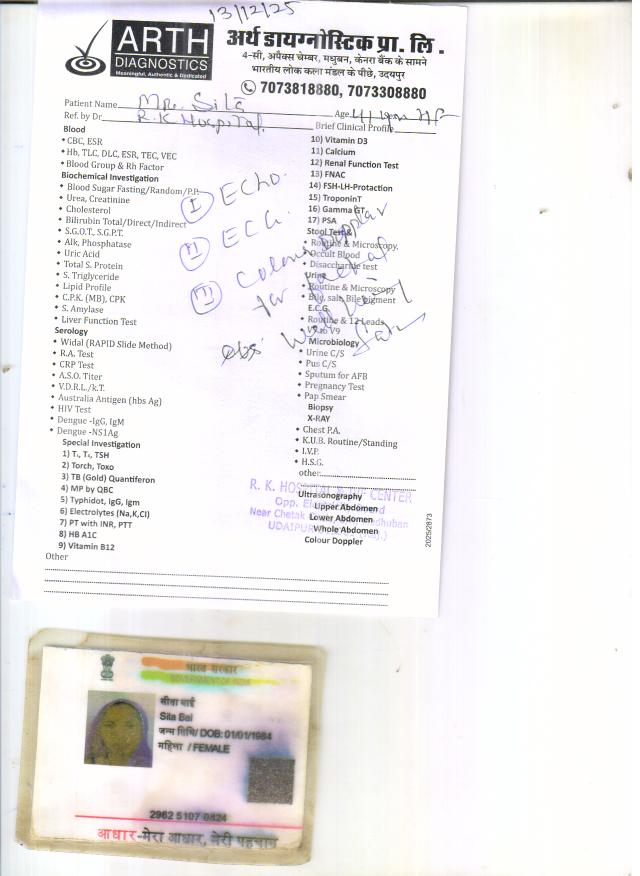 13/12/25
ARTH
DIAGNOSTICS
Meaningful, Authentic & Dedicated
अर्थ डायग्नोस्टिक प्रा. लि.
4-सी, अपैक्स चेम्बर, मधुबन, केनरा बैंक के सामने
भारतीय लोक कला मंडल के पीछे, उदयपुर
7073818880, 7073308880
Patient Name Sita Age 41
Ref. by Dr. R.K Hospital Brief Clinical Profile
Blood
• CBC, ESR
• Hb, TLC, DLC, ESR, TEC, VEC
• Blood Group & Rh Factor
Biochemical Investigation
• Blood Sugar Fasting/Random/P.P.
• Urea, Creatinine
• Cholesterol
• Bilirubin Total/Direct/Indirect
• S.G.O.T., S.G.P.T.
• Alk, Phosphatase
• Uric Acid
• Total S. Protein
• S. Triglyceride
• Lipid Profile
• C.P.K. (MB), CPK
• S. Amylase
• Liver Function Test
Serology
• Widal (RAPID Slide Method)
• R.A. Test
• CRP Test
• A.S.O. Titer
• V.D.R.L./k.T.
• Australia Antigen (hbs Ag)
• HIV Test
• Dengue -IgG, IgM
• Dengue -NS1Ag
Special Investigation
1) T₃, T₄, TSH
2) Torch, Toxo
3) TB (Gold) Quantiferon
4) MP by QBC
5) Typhidot, IgG, Igm
6) Electrolytes (Na,K,Cl)
7) PT with INR, PTT
8) HB A1C
9) Vitamin B12
Other
10) Vitamin D3
11) Calcium
12) Renal Function Test
13) FNAC
14) FSH-LH-Protaction
15) TroponinT
16) Gamma GT
17) PSA
Stool Test &
• Routine & Microscopy,
• Occult Blood
• Disaccharide test
Urine
• Routine & Microscopy
• Bile, salt, Bile pigment
E.C.G.
• Routine & 12 Leads
V9
Microbiology
• Urine C/S
• Pus C/S
• Sputum for AFB
• Pregnancy Test
• Pap Smear
Biopsy
X-RAY
• Chest P.A.
• K.U.B. Routine/Standing
• I.V.P.
• H.S.G.
other
Ultrasonography
Upper Abdomen
Lower Abdomen
Whole Abdomen
Colour Doppler
I ECHO.
II ECG.
III Colour Doppler
for
R. K. HOSPITAL CENTER
Opp.
Near Chetak Madhuban
UDAIPUR
2025/2873
भारत सरकार
GOVERNMENT OF INDIA
सीता बाई
Sita Bai
जन्म तिथि/ DOB: 01/01/1984
महिला / FEMALE
2962 5107 0824
आधार-मेरा आधार, मेरी पहचान